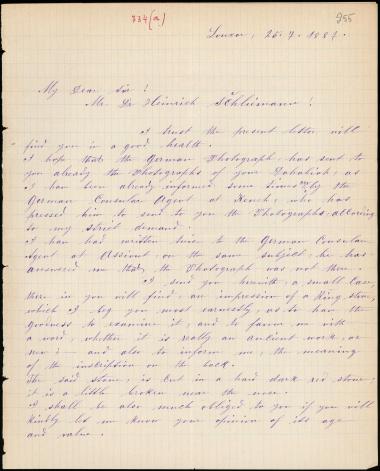 734(a)
255
Louxor, 26. 7. 1887.
My Dear Sir!
Mr. Dr. Heinrich Schliemann!
I trust the present letter will
find you in a good health.
I hope that the German Photograph, has sent to
you already the Photographs of your Dahabiah; as
I have been already informed some times by the
German Consular Agent at Keneh; who has
pressed him to send to you the Photographs according
to my strict demand.
I had written twice to the German Consular
Agent at Assiout, on the same subject, he has
answered me that, the Photograph was not there.
I send you herewith, a small Case,
there in you will find, an impression of a Ring stone,
which I beg you most earnestly, as to have the
Goodness to examine it, and to favor me with
a word, whether it is really an ancient work, or
new; — and also to inform me, the meaning
of the inscription on the back.
The said stone, is cut in a hard dark red stone,
it is a little broken near the nose.
I shall be also much obliged to you if you will
kindly let me know your opinion of its age
and value.